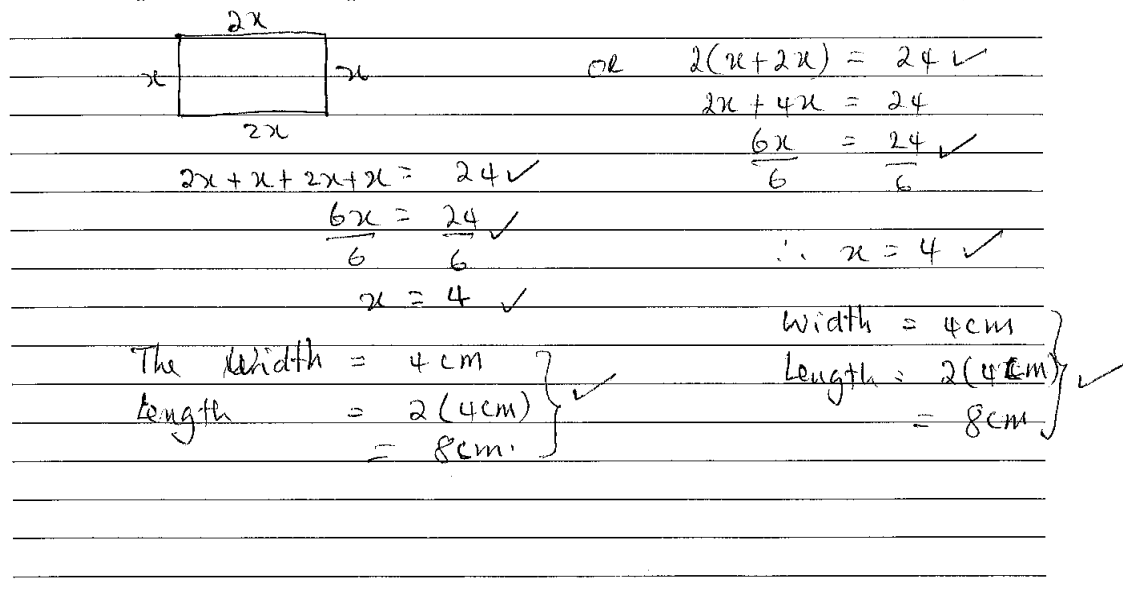 2x
x
x
2x
2x + x + 2x + x = 24 ✓
6x = 24 ✓
6 6
x = 4 ✓
The Width = 4 cm
Length = 2 (4cm) ✓
= 8cm.
OR 2(x + 2x) = 24 ✓
2x + 4x = 24
6x = 24 ✓
6 6
∴ x = 4 ✓
Width = 4cm
Length = 2(4cm) ✓
= 8cm